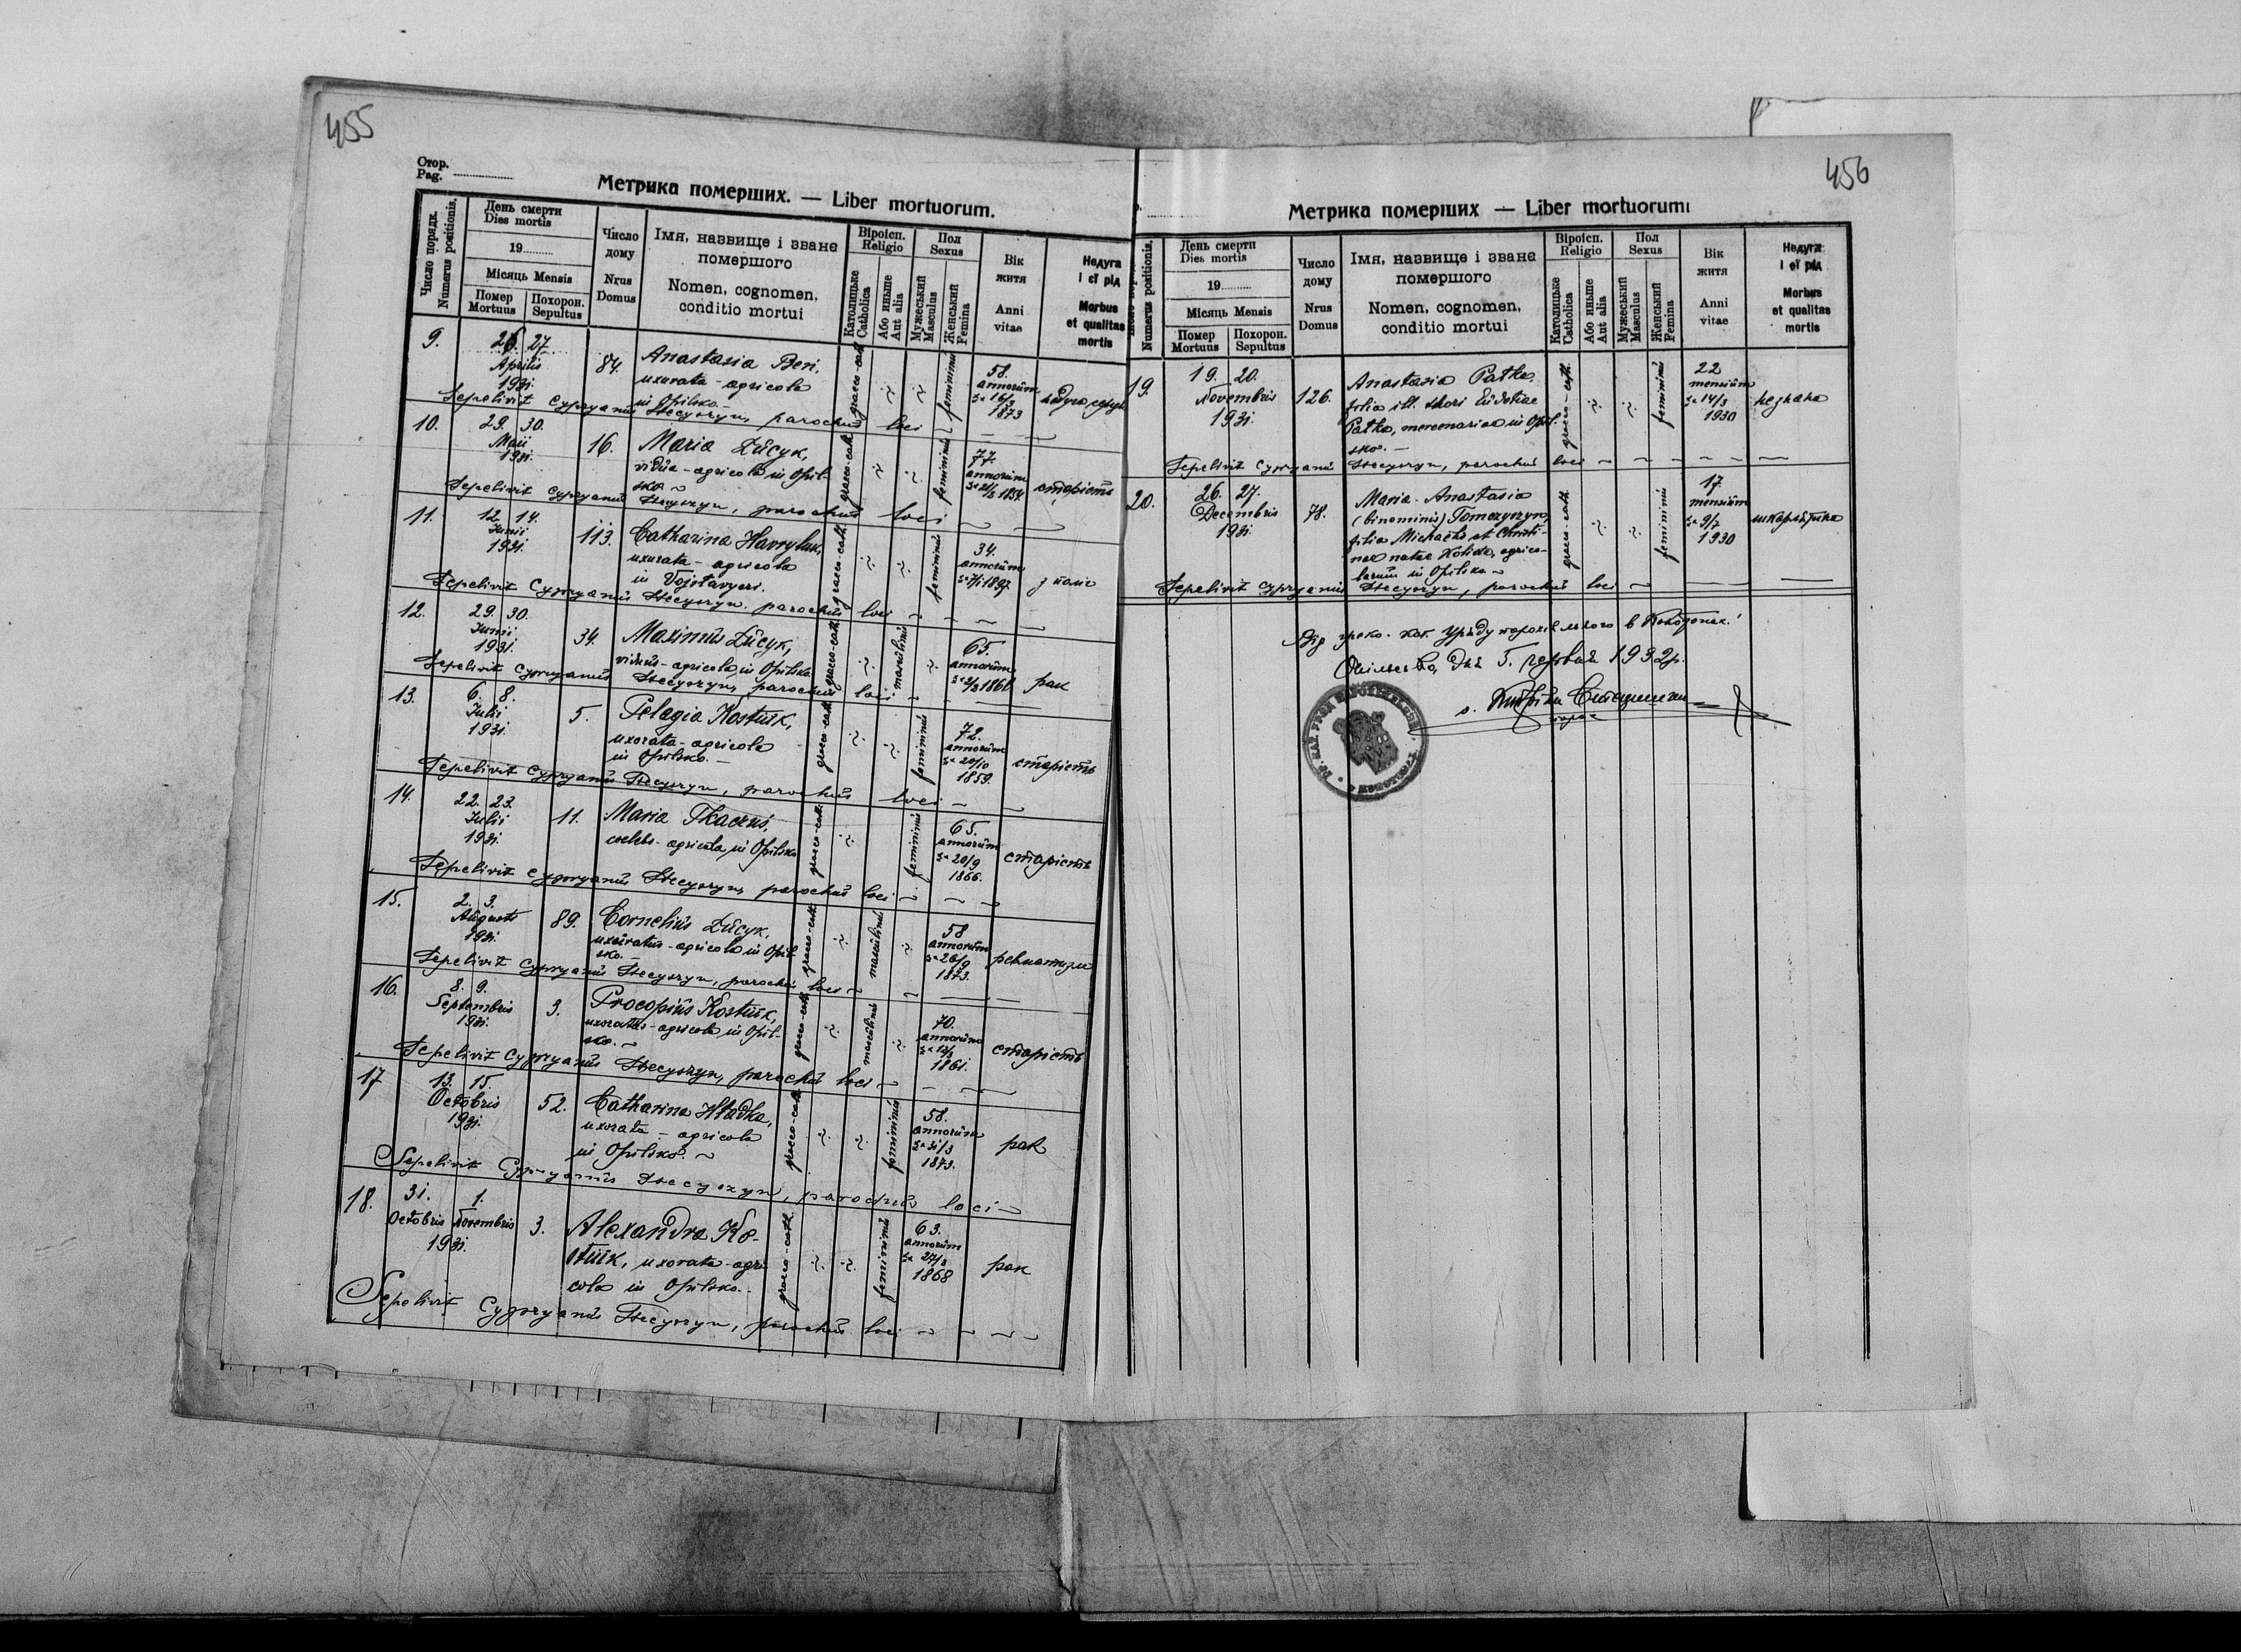 455
Стор.
Pag.
Метрика померших. — Liber mortuorum.
Число порядк.
Numerus positionis.
День смерти
Dies mortis
19
Місяць Mensis
Помер
Mortuus
Похорон.
Sepultus
Число
дому
Nrus
Domus
Імя, назвище і зване
помершого
Nomen, cognomen,
conditio mortui
Віроісп.
Religio
Католицьке
Catholica
Або иньше
Aut alia
Пол
Sexus
Мужеський
Masculus
Женський
Femina
Вік
житя
Anni
vitae
Недуга
і єї рід
Morbus
et qualitas
mortis
9. 26. 27. 84. Anastasia Beri, graeco-cath. femininus 58.
Aprilis uxorata - agricola annorum
1931. in Opilsko. 16/3 1873
Sepelivit Cypryanus Stecyszyn, parochus loci
10. 29. 30. 16. Maria Dücyk, graeco-cath. femininus 77.
Maii vidua - agricola in Opil- annorum старість
1931. sko 1854
Sepelivit Cypryanus Stecyszyn, parochus loci
11. 12. 14. 113. Catharina Havryluk, graeco-cath. femininus 34.
Junii uxorata - agricola annorum
1931. in Vojslavyci. 1897
Sepelivit Cypryanus Stecyszyn, parochus loci
12. 29. 30. 34. Maximus Dücyk, graeco-cath. masculinus 65.
Junii viduus - agricola in Opilsko annorum рак
1931.
Sepelivit Cypryanus Stecyszyn, parochus loci
13. 6. 8. 5. Pelagia Kostiuk, graeco-cath. femininus 72.
Julii uxorata - agricola annorum старість
1931. in Opilsko. 20/10 1859.
Sepelivit Cypryanus Stecyszyn, parochus loci
14. 22. 23. 11. Maria Tkaczus, graeco-cath. femininus 65.
Julii coelebs - agricola in Opilsko annorum старість
1931. 20/9 1866.
Sepelivit Cypryanus Stecyszyn, parochus loci
15. 2. 3. 89. Cornelius Dücyk, graeco-cath. masculinus 58
Augusti uxoratus - agricola in Opil- annorum ревматизм
1931. sko. 26/9 1873.
Sepelivit Cypryanus Stecyszyn, parochus loci
16. 8. 9. 3. Procopius Kostiuk, graeco-cath. masculinus 70.
Septembris uxoratus - agricola in Opil- annorum старість
1931. sko. 1861.
Sepelivit Cypryanus Stecyszyn, parochus loci
17 13. 15. 52. Catharina Hladka, graeco-cath. femininus 58.
Octobris uxorata - agricola annorum рак
1931. in Opilsko. 31/3 1873.
Sepelivit Cypryanus Stecyszyn, parochus loci
18. 31. 1. 3. Alexandra Ko- graeco-cath. femininus 63.
Octobris Novembris stiuk, uxorata - agri- annorum рак
1931. cola in Opilsko. 1868
Sepelivit Cypryanus Stecyszyn, parochus loci
456
Метрика померших — Liber mortuorum
Numerus positionis.
День смерти
Dies mortis
19
Місяць Mensis
Помер
Mortuus
Похорон.
Sepultus
Число
дому
Nrus
Domus
Імя, назвище і зване
помершого
Nomen, cognomen,
conditio mortui
Віроісп.
Religio
Католицьке
Catholica
Або иньше
Aut alia
Пол
Sexus
Мужеський
Masculus
Женський
Femina
Вік
житя
Anni
vitae
Недуга
і єї рід
Morbus
et qualitas
mortis
19. 19. 20. 126. Anastasia Patka, graeco-cath. femininus 22
Novembris filia ill. thori Eudotiae mensium незнана
1931. Patka, mercenaria in Opil- 14/3
sko. 1930
Sepelivit Cypryanus Stecyszyn, parochus loci
20. 26. 27. 78. Maria-Anastasia graeco-cath. femininus 17.
Decembris (binominis) Tomczyszyn, mensium
1931. filia Michaelis et Christi- 9/7 шкарлятина
nae natae Kolida, agrico- 1930
larum in Opilsko
Sepelivit Cypryanus Stecyszyn, parochus loci
Від греко-кат. Уряду парохіяльного в
дня 5. 1932 р.